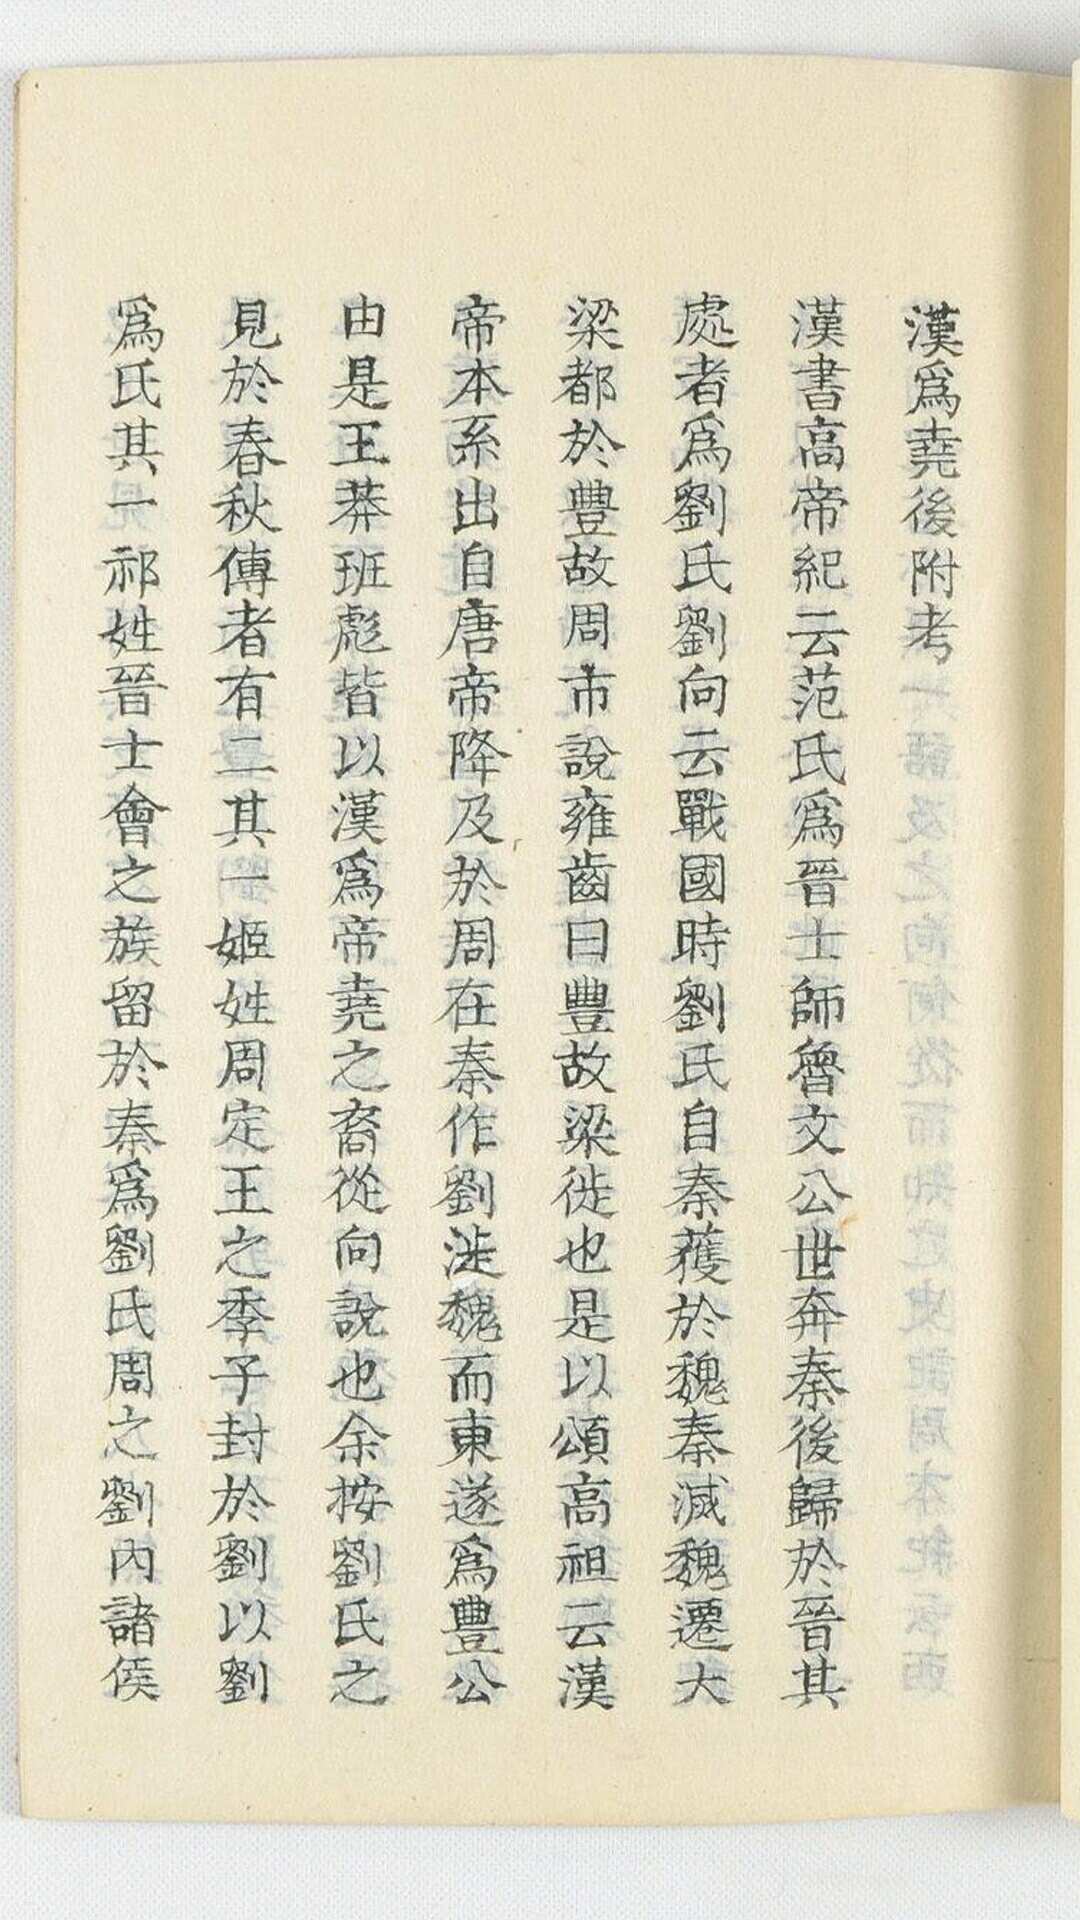 漢爲堯後附考
漢書高帝紀云范氏爲晉士師魯文公世奔秦後歸於晉其
處者爲劉氏劉向云戰國時劉氏自秦獲於魏秦滅魏遷大
梁都於豐故周市說雍齒曰豐故梁徙也是以頌高祖云漢
帝本系出自唐帝降及於周在秦作劉涉魏而東遂爲豐公
由是王莽班彪皆以漢爲帝堯之裔從向說也余按劉氏之
見於春秋傳者有二其一姬姓周定王之季子封於劉以劉
爲氏其一祁姓晉士會之族留於秦爲劉氏周之劉內諸侯